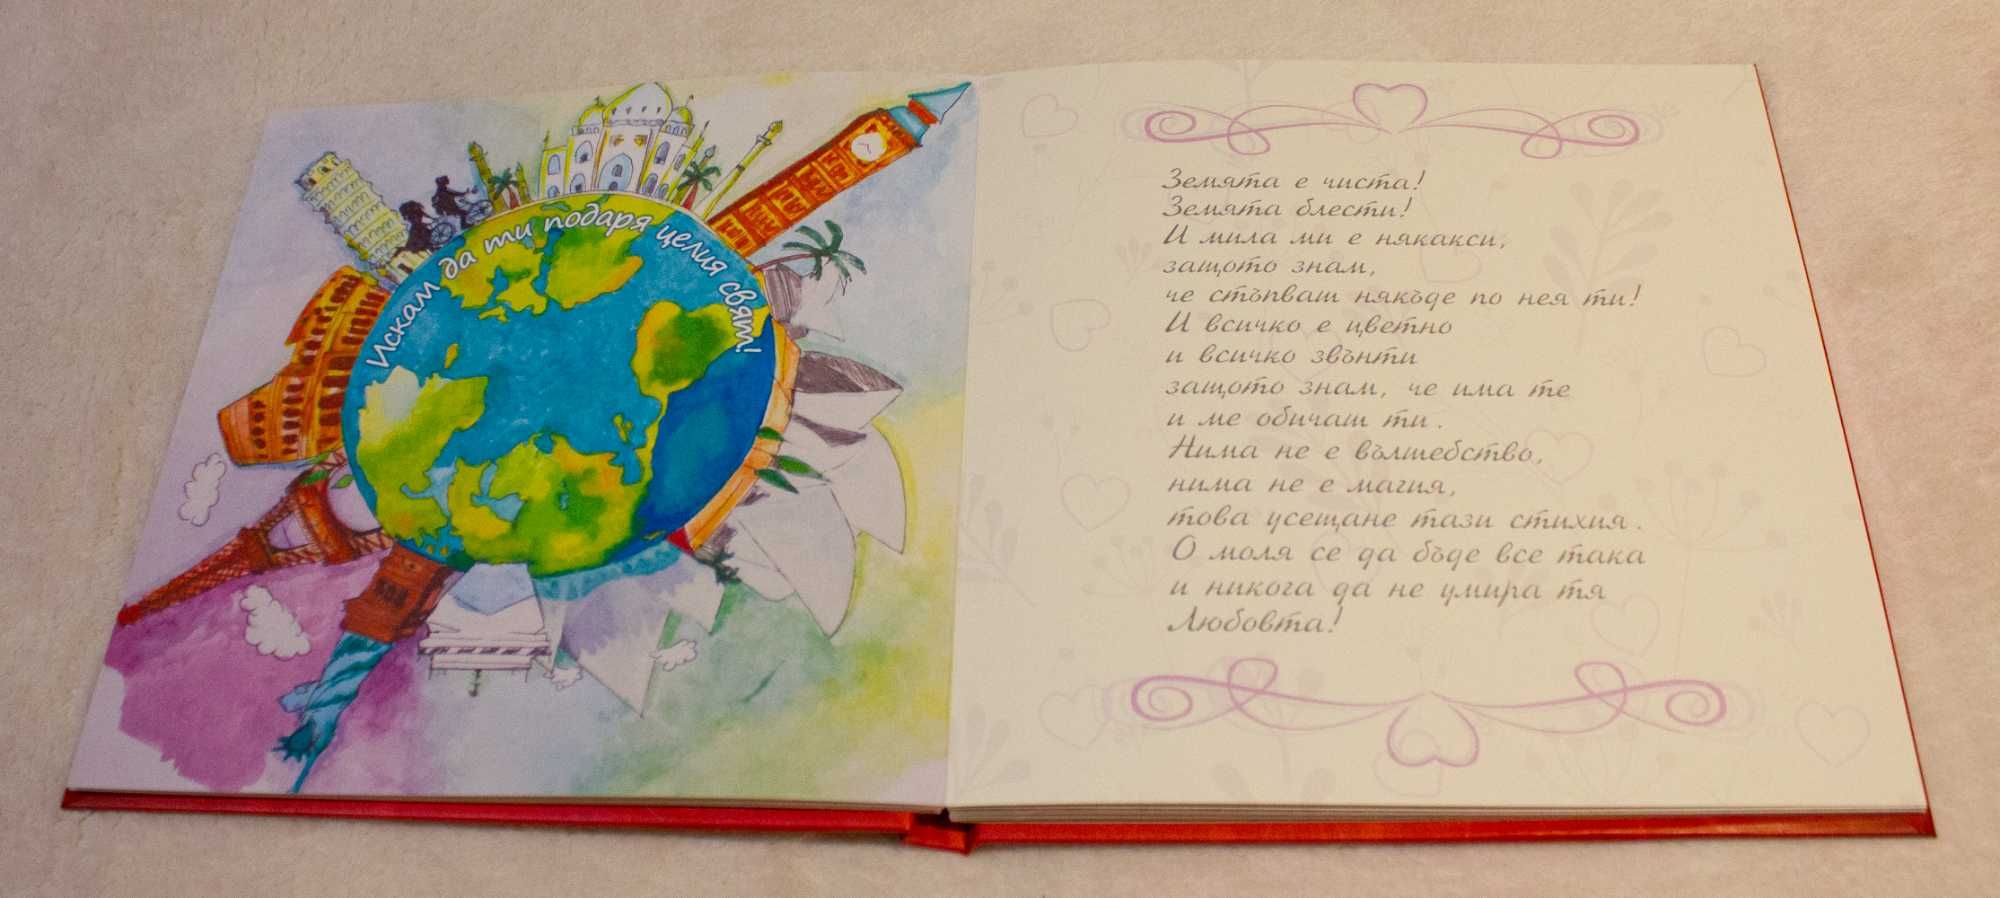 Искам да ти подаря целия свят!
Земята е чиста!
Земята блести!
И мила ми е някакси,
защото знам,
че стъпваш някъде по нея ти!
И всичко е цветно
и всичко звънти
защото знам, че има те
и ме обичаш ти.
Нима не е вълшебство,
нима не е магия,
това усещане тази стихия.
О моля се да бъде все така
и никога да не умира тя
Любовта!